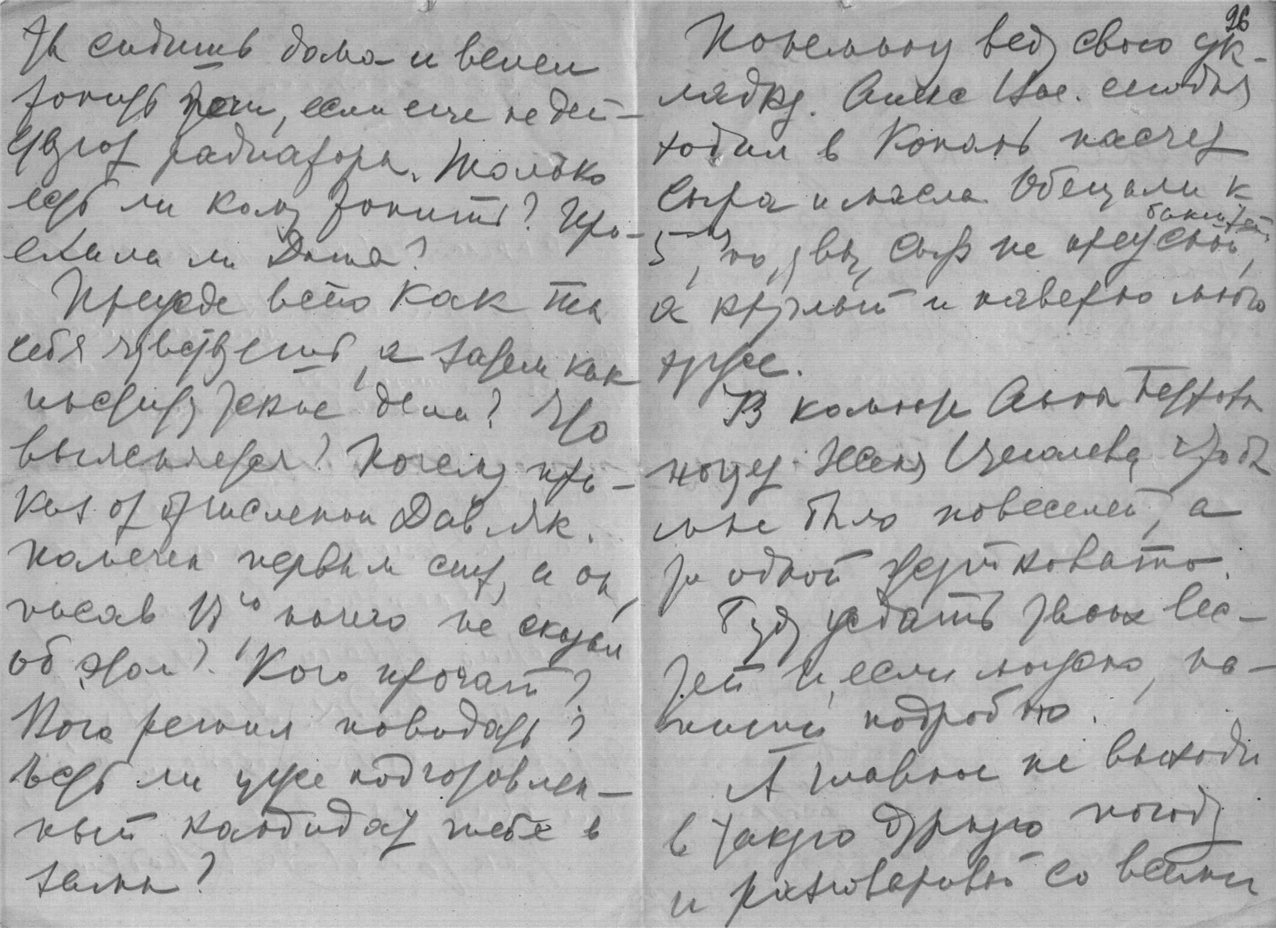 ты сидишь дома и велел
топить печи, если еще не дей-
ствуют радиаторы. Только
есть ли кому топить? При-
ехала ли Даша?
Прежде всего как ты
себя чувствуешь, а затем как
институтские дела? Что
выясняется? Почему при-
каз от отчислении Дав. Як.
помечен первым сент, а он,
писав 12го ничего не сказал
об этом? Кого прочат?
Кого решил повидать?
Есть ли уже подготовлен-
ный кандидат тебе в
замы?
26
Понемногу веду свою ук-
ладку. Алекс Ив. сегодня
ходил в Копань насчет
сыра и масла. Обещали к
5, но, увы, сыр не брусной,
а круглый и наверно много
хуже.
В комнате Анны Петровны
ночует Женя Щеголева, чтобы
мне было повеселей, а
то одной жутковато.
Буду ждать твоих вес-
тей и, если можно, на-
пиши подробно.
А главное не выходи
в такую дурную погоду
и разговаривай со всеми